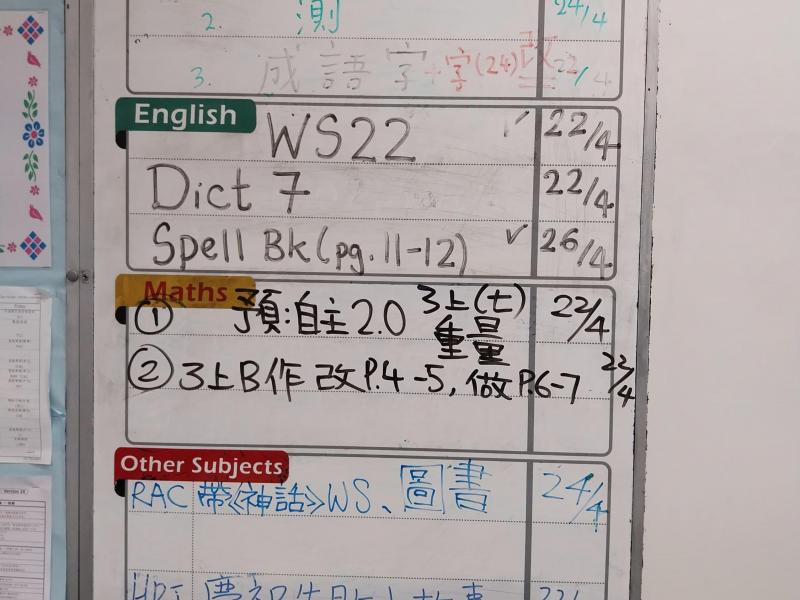 2. 測 24/4
3. 成語字+字(24)改 22/4
English
WS22 ✓ 22/4
Dict 7 22/4
Spell Bk (pg. 11-12) ✓ 26/4
Maths
① 預:自主2.0 3上(七) 22/4
重量
② 3上B作 改P.4-5, 做P.6-7 22/4
Other Subjects
RAC 帶《神話》WS、圖書 24/4